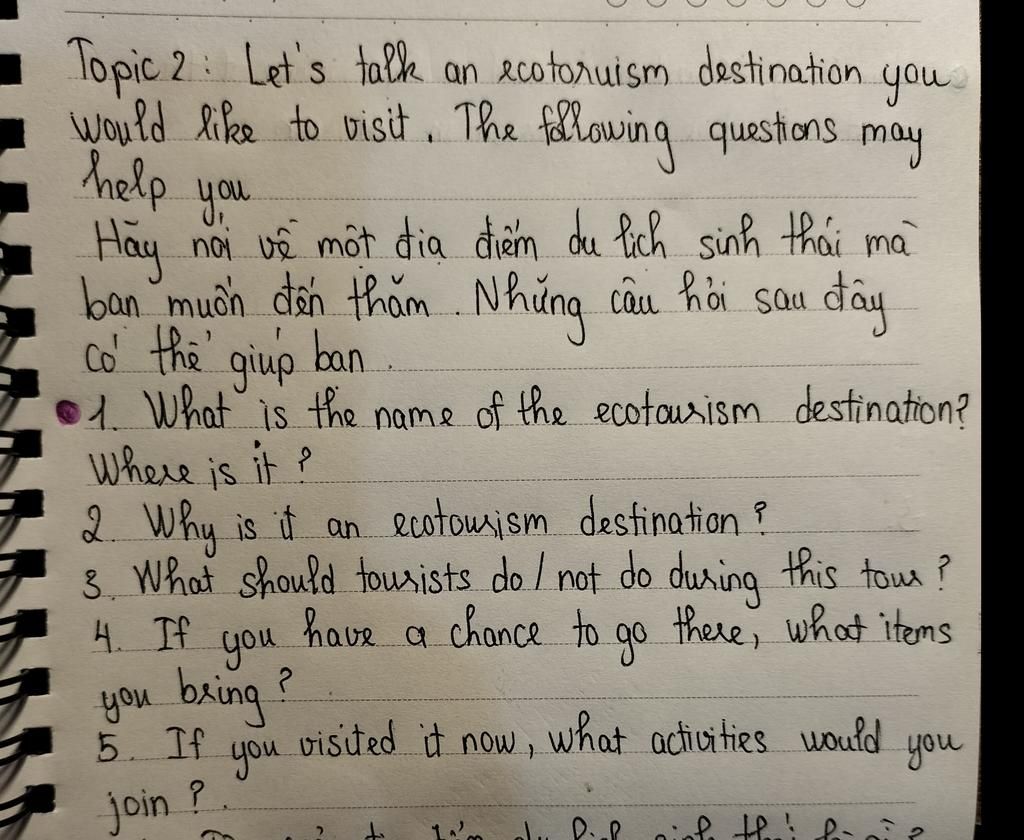 Topic 2: Let's talk an ecotoruism destination you
would like to visit. The following questions may
help you
Hãy nói về một địa điểm du lịch sinh thái mà
bạn muốn đến thăm. Những câu hỏi sau đây
có thể giúp bạn.
1. What is the name of the ecotourism destination?
Where is it?
2. Why is it an ecotourism destination?
3. What should tourists do / not do during this tour?
4. If you have a chance to go there, what items
you bring?
5. If you visited it now, what activities would you
join?.